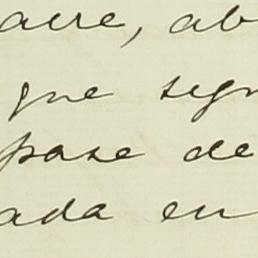 aire, ab
que sign
pase de
ada en